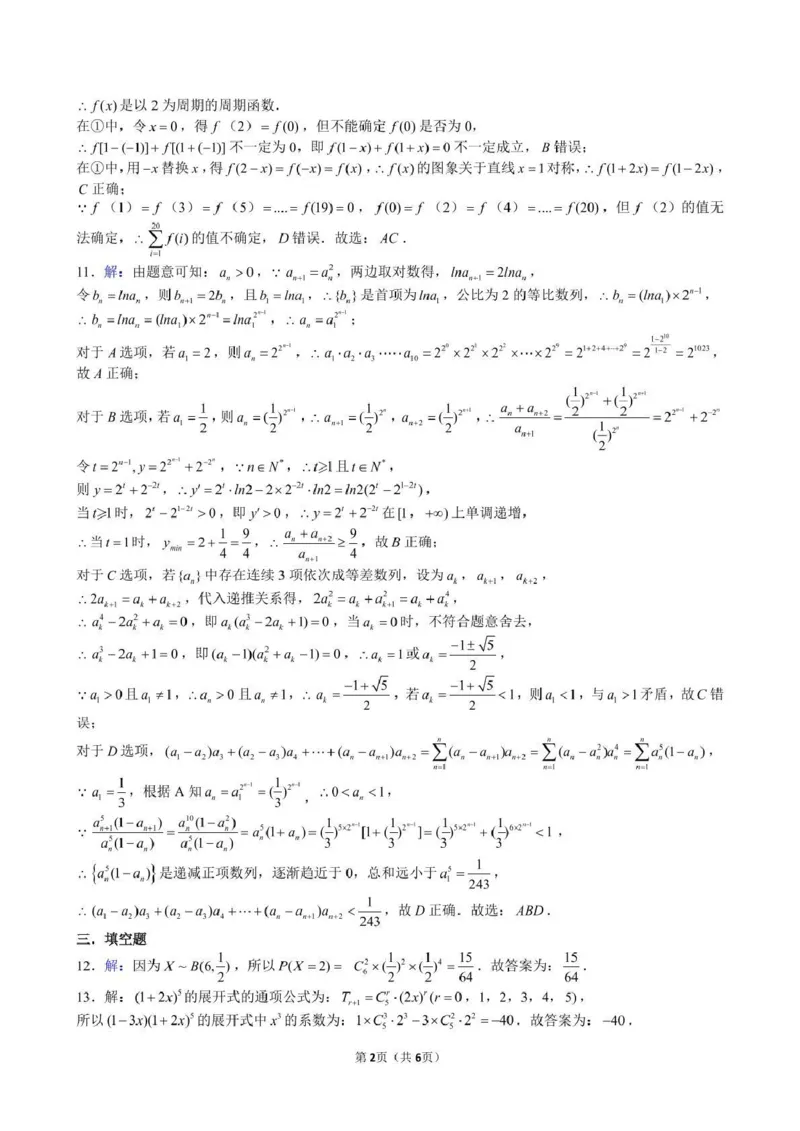 ∴ f(x)是以2为周期的周期函数.
在①中，令x=0，得 f（2）= f(0)，但不能确定 f(0)是否为0，
∴ f[1-(-1)]+ f[(1+(-1)]不一定为0，即 f(1-x)+ f(1+x)=0不一定成立，B错误；
在①中，用-x替换x，得 f(2-x)= f(-x)= f(x)，∴ f(x)的图象关于直线x=1对称，∴ f(1+2x)= f(1-2x)，
C 正确；
∵ f（1）= f（3）= f（5）=....= f(19)=0，f(0)= f（2）= f（4）=....= f(20)，但 f（2）的值无
法确定，∴ ∑_{i=1}^{20} f(i)的值不确定，D错误．故选：AC．
11．解：由题意可知：a_n >0，∵ a_{n+1} =a_n^2，两边取对数得，lna_{n+1} =2lna_n，
令b_n =lna_n，则b_{n+1} =2b_n，且b_1 =lna_1，∴{b_n}是首项为lna_1，公比为2的等比数列，∴ b_n =(lna_1)×2^{n-1}，
∴ b_n =lna_n =(lna_1)×2^{n-1} =lna_1^{2^{n-1}}，∴ a_n =a_1^{2^{n-1}}；
对于A选项，若a_1 =2，则a_n =2^{2^{n-1}}，∴ a_1·a_2·a_3·····a_{10} =2^{2^0}×2^{2^1}×2^{2^2}×···×2^{2^9} =2^{1+2+4+···+2^9} =2^{\frac{1-2^{10}}{1-2}} =2^{1023}，
故A正确；
对于B选项，若a_1 =\frac{1}{2}，则a_n =(\frac{1}{2})^{2^{n-1}}，∴a_{n+1} =(\frac{1}{2})^{2^n}，a_{n+2} =(\frac{1}{2})^{2^{n+1}}，∴ \frac{a_n+a_{n+2}}{a_{n+1}} =\frac{(\frac{1}{2})^{2^{n-1}}+(\frac{1}{2})^{2^{n+1}}}{(\frac{1}{2})^{2^n}} =2^{2^{n-1}}+2^{-2^n}
令t=2^{n-1}，y=2^{2^{n-1}}+2^{-2^n}，∵n∈N^*，∴t⩾1且t∈N^*，
则 y=2^t +2^{-2t}，∴ y′=2^t·ln2-2×2^{-2t}·ln2=ln2(2^t -2^{1-2t})，
当t⩾1时，2^t -2^{1-2t} >0，即y′>0，∴y=2^t +2^{-2t}在[1，+∞)上单调递增，
∴当t=1时，y_{min} =2+\frac{1}{4}=\frac{9}{4}，∴ \frac{a_n+a_{n+2}}{a_{n+1}} ≥\frac{9}{4}，故B正确；
对于C选项，若{a_n}中存在连续3项依次成等差数列，设为a_k，a_{k+1}，a_{k+2}，
∴2a_{k+1} =a_k +a_{k+2}，代入递推关系得，2a_k^2 =a_k +a_{k+1}^2 =a_k +a_k^4，
∴ a_k^4 -2a_k^2 +a_k =0，即a_k(a_k^3 -2a_k +1)=0，当a_k =0时，不符合题意舍去，
∴ a_k^3 -2a_k +1=0，即(a_k -1)(a_k^2 +a_k -1)=0，∴a_k =1或a_k =\frac{-1± 5}{2}，
∵a_1 >0且a_1 ≠1，∴a_n >0 且a_n ≠1，∴ a_k =\frac{-1+ 5}{2}，若a_k =\frac{-1+ 5}{2}<1，则a_1 <1，与a_1 >1矛盾，故C错
误；
对于D选项，(a_1 -a_2)a_3 +(a_2 -a_3)a_4 +···+(a_n -a_{n+1})a_{n+2} =∑_{n=1}^{n}(a_n -a_{n+1})a_{n+2} =∑_{n=1}^{n}(a_n -a_n^2)a_n^4 =∑_{n=1}^{n}a_n^5(1-a_n)，
∵ a_1 =\frac{1}{3}，根据A知a_n =a_1^{2^{n-1}} =(\frac{1}{3})^{2^{n-1}}，∴0<a_n <1，
∵ \frac{a_{n+1}^5(1-a_{n+1})}{a_n^5(1-a_n)} =\frac{a_n^{10}(1-a_n^2)}{a_n^5(1-a_n)} =a_n^5(1+a_n)=(\frac{1}{3})^{5×2^{n-1}}[1+(\frac{1}{3})^{2^{n-1}}]=(\frac{1}{3})^{5×2^{n-1}}+(\frac{1}{3})^{6×2^{n-1}}<1，
∴ {a_n^5(1-a_n)}是递减正项数列，逐渐趋近于0，总和远小于a_1^5 =\frac{1}{243}，
∴(a_1 -a_2)a_3 +(a_2 -a_3)a_4 +···+(a_n -a_{n+1})a_{n+2} <\frac{1}{243}，故D正确．故选：ABD．
三．填空题
12．解：因为X ~ B(6,\frac{1}{2})，所以P(X =2)= C_6^2×(\frac{1}{2})^2×(\frac{1}{2})^4 =\frac{15}{64}．故答案为：\frac{15}{64}．
13．解：(1+2x)^5的展开式的通项公式为：T_{r+1} =C_5^r·(2x)^r(r=0，1，2，3，4，5)，
所以(1-3x)(1+2x)^5的展开式中x^3的系数为：1×C_5^3·2^3 -3×C_5^2·2^2 =-40．故答案为：-40．
第2页（共6页）